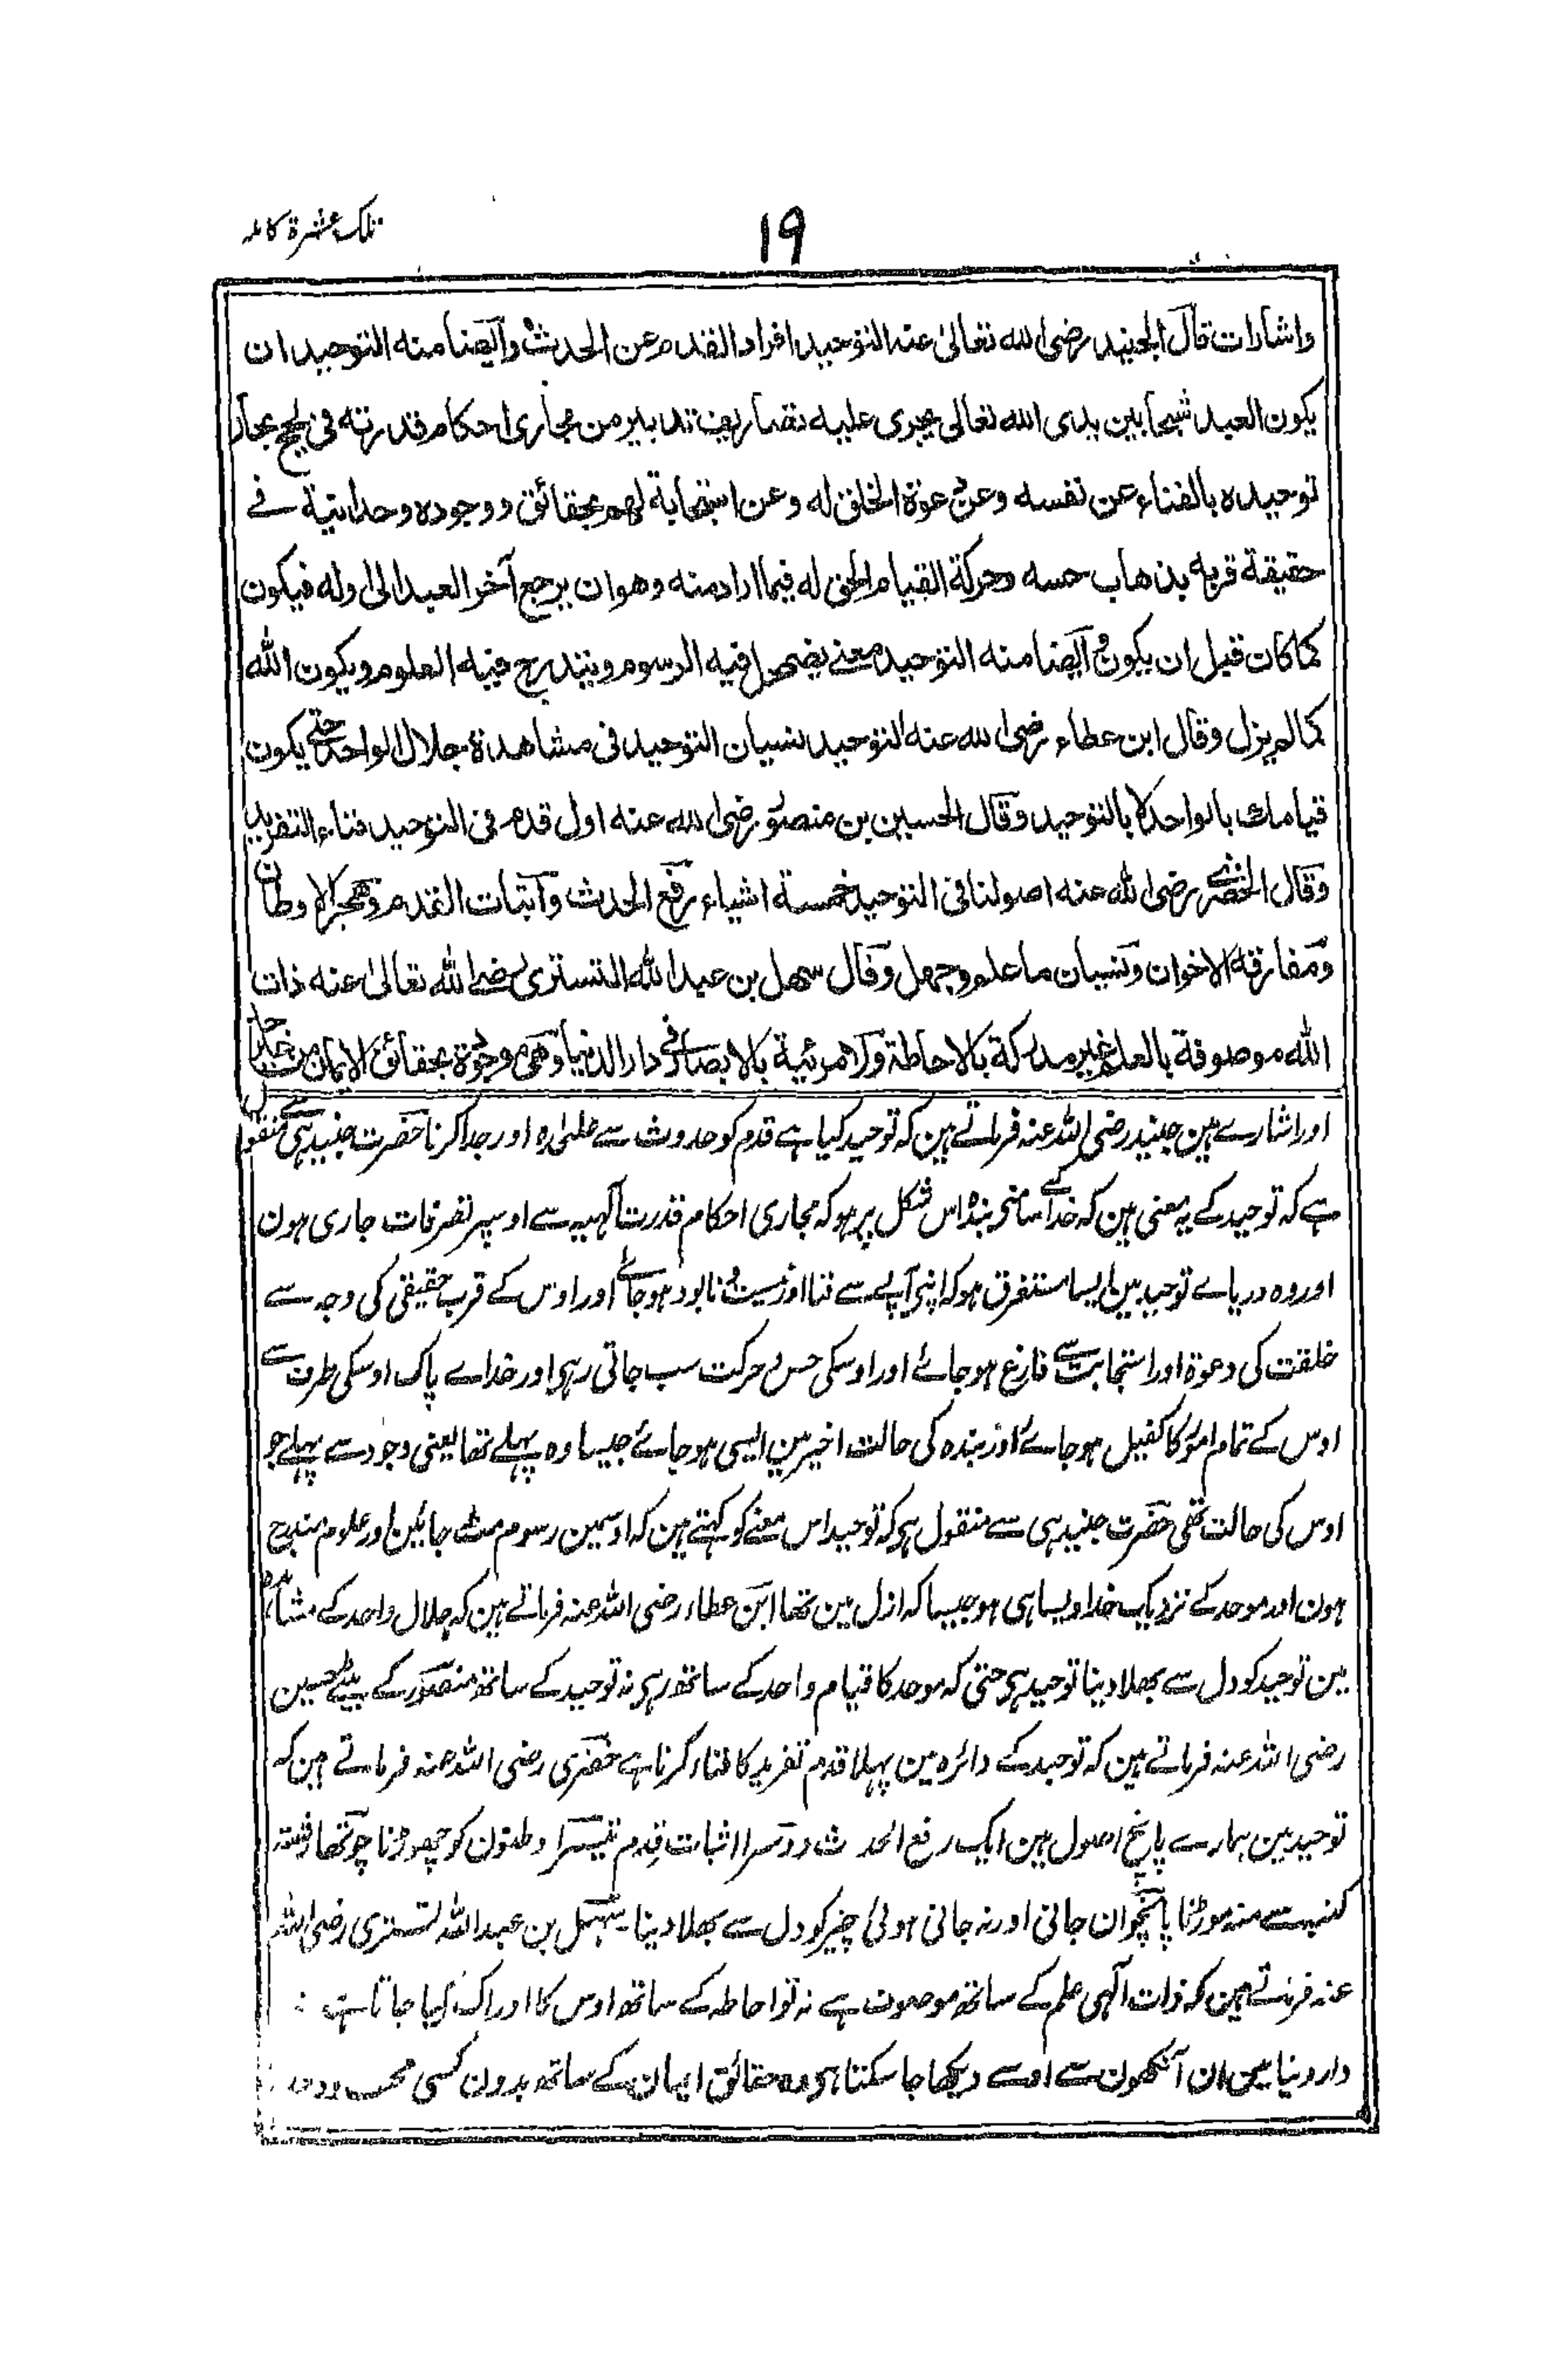 تلک عشرة کاملہ
۱۹
واشارات قال الجنید رضی الله تعالیٰ عنه التوحید افراد القدم عن الحدث وایضا منه التوحید ان
یکون العبد شبحا بین یدی الله تعالی یجری علیه تصاریف تدبیره من مجاری احکام قدرته فی لجج بحار
توحیده بالفناء عن نفسه وعن دعوة الخلق له وعن استجابة لهم بحقائق ووجوده وحدانیة فے
حقیقة قربه بذهاب حسه وحرکة القیام الحق له فیما اراد منه وهو ان یرجع آخر العبد الی اوله فیکون
کما کان قبل ان یکون وایضا منه التوحید معنے یضمحل فیه الرسوم ویتدرج فیه العلوم ویکون الله
کما لم یزل وقال ابن عطاء رضی الله عنه التوحید نسیان التوحید فی مشاهدة جلال الواحد حتی یکون
قیامك بالواحد لا بالتوحید وقال الحسین بن منصور رضی الله عنه اول قدم فی التوحید فناء التفرید
وقال الخضری رضی الله عنه اصولنا فی التوحید خمسة اشیاء رفع الحدث واثبات القدم وهجر الاوطان
ومفارقة الاخوان ونسیان ما علم وجهل وقال سهل بن عبد الله التستری رضی الله تعالیٰ عنه ذات
الله موصوفة بالعلم غیر مدرکة بالاحاطة ولا مرئیة بالابصار فی دار الدنیا وهی موجودة بحقائق الایمان من
اور اشارے ہین جنید رضی اللہ عنہ فرماتے ہین کہ توحید کیا ہے قدم کو حدوث سے علیٰدہ اور جدا کرنا حضرت جنید ہی سے منقول
ہے کہ توحید کے یہ معنی ہین کہ خدا کے سامنے بندہ اس شکل پر ہو کہ مجاری احکام قدرت آلہیہ سے اوسپر تصرفات جاری ہون
اور وہ دریاے توحید مین ایسا مستغرق ہو کہ اپنے آپے سے فنا اور نیست و نابود ہو جاے اور اوس کے قرب حقیقی کی وجہ سے
خلقت کی دعوۃ اور استجابت سے فارغ ہو جائے اور اوسکی حس و حرکت سب جاتی رہی اور خداے پاک اوسکی طرف سے
اوس کے تمام امور کا کفیل ہو جاے اور بندہ کی حالت اخیر مین ایسی ہو جائے جیسا وہ پہلے تھا یعنی وجود سے پہلے جو
اوس کی حالت تھی حضرت جنید ہی سے منقول ہی کہ توحید اس معنے کو کہتے ہین کہ اوسمین رسوم مٹ جائین اور علوم مندرج
ہون اور موحد کے نزدیک خدا ویسا ہی ہو جیسا کہ ازل مین تھا ابن عطاء رضی اللہ عنہ فرماتے ہین کہ جلال واحد کے مشاہدہ
مین توحید کو دل سے بھلا دینا توحید ہی حتی کہ موحد کا قیام واحد کے ساتھ رہی نہ توحید کے ساتھ منصور کے بیٹے حسین
رضی اللہ عنہ فرماتے ہین کہ توحید کے دائرہ مین پہلا قدم تفرید کا فناء کرنا ہے خضری رضی اللہ عنہ فرماتے ہین کہ
توحید مین ہمارے پانچ اصول ہین ایک رفع الحدث دوسرا اثبات قدم تیسرا وطنون کو چھوڑنا چوتھا
کنبہ سے منہ موڑنا پانچوان جانی اور نہ جانی ہوئی چیز کو دل سے بھلا دینا۔ سہل بن عبد اللہ تستری رضی اللہ
عنہ فرماتے ہین کہ ذات آلٰہی علم کے ساتھ موصوف ہے نہ تو احاطہ کے ساتھ اوس کا ادراک کیا جاتا ہے
دار دنیا مین ان آنکھون سے اوسے دیکھا جا سکتا ہی وہ حقائق ایمان کے ساتھ بدون کسی